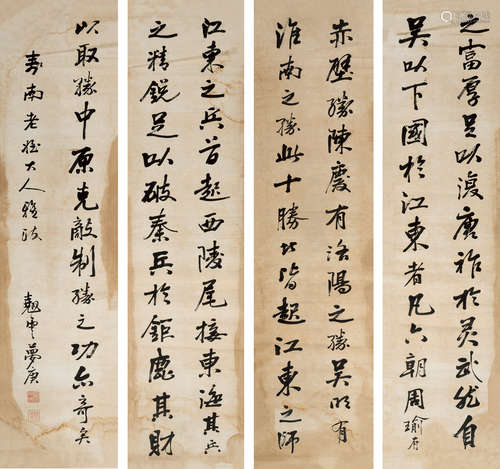 之富厚足以復唐祚於灵武然自
吴以下國於江東者凡六朝周瑜有
赤壁勝陳慶有洛陽之勝吴明有
淮南之勝此十勝皆起江東之師
江東之兵首起西陵尾接東海其兵
之精銳足以破秦兵於鉅鹿其財
以取勝中原克敵制勝之功亦奇矣
壽南老姪大人雅政
夢庚